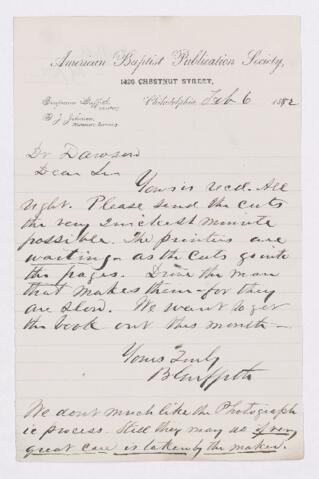 American Baptist Publication Society,
1420 CHESTNUT STREET,
Benjamin Griffith,
Philadelphia, Feb 6 1882
Dr Dawson
Dear Sir
Yours is recd. All
right. Please send the cuts
the very quickest minute
possible. The printers are
waiting - as the cuts go into
the pages. Drive the man
that makes them - for they
are slow. We want to get
the book out this month -
Yours Truly
B Griffith
We dont much like the Photograph
ic process. Still they may do if very
great care is taken by the maker.